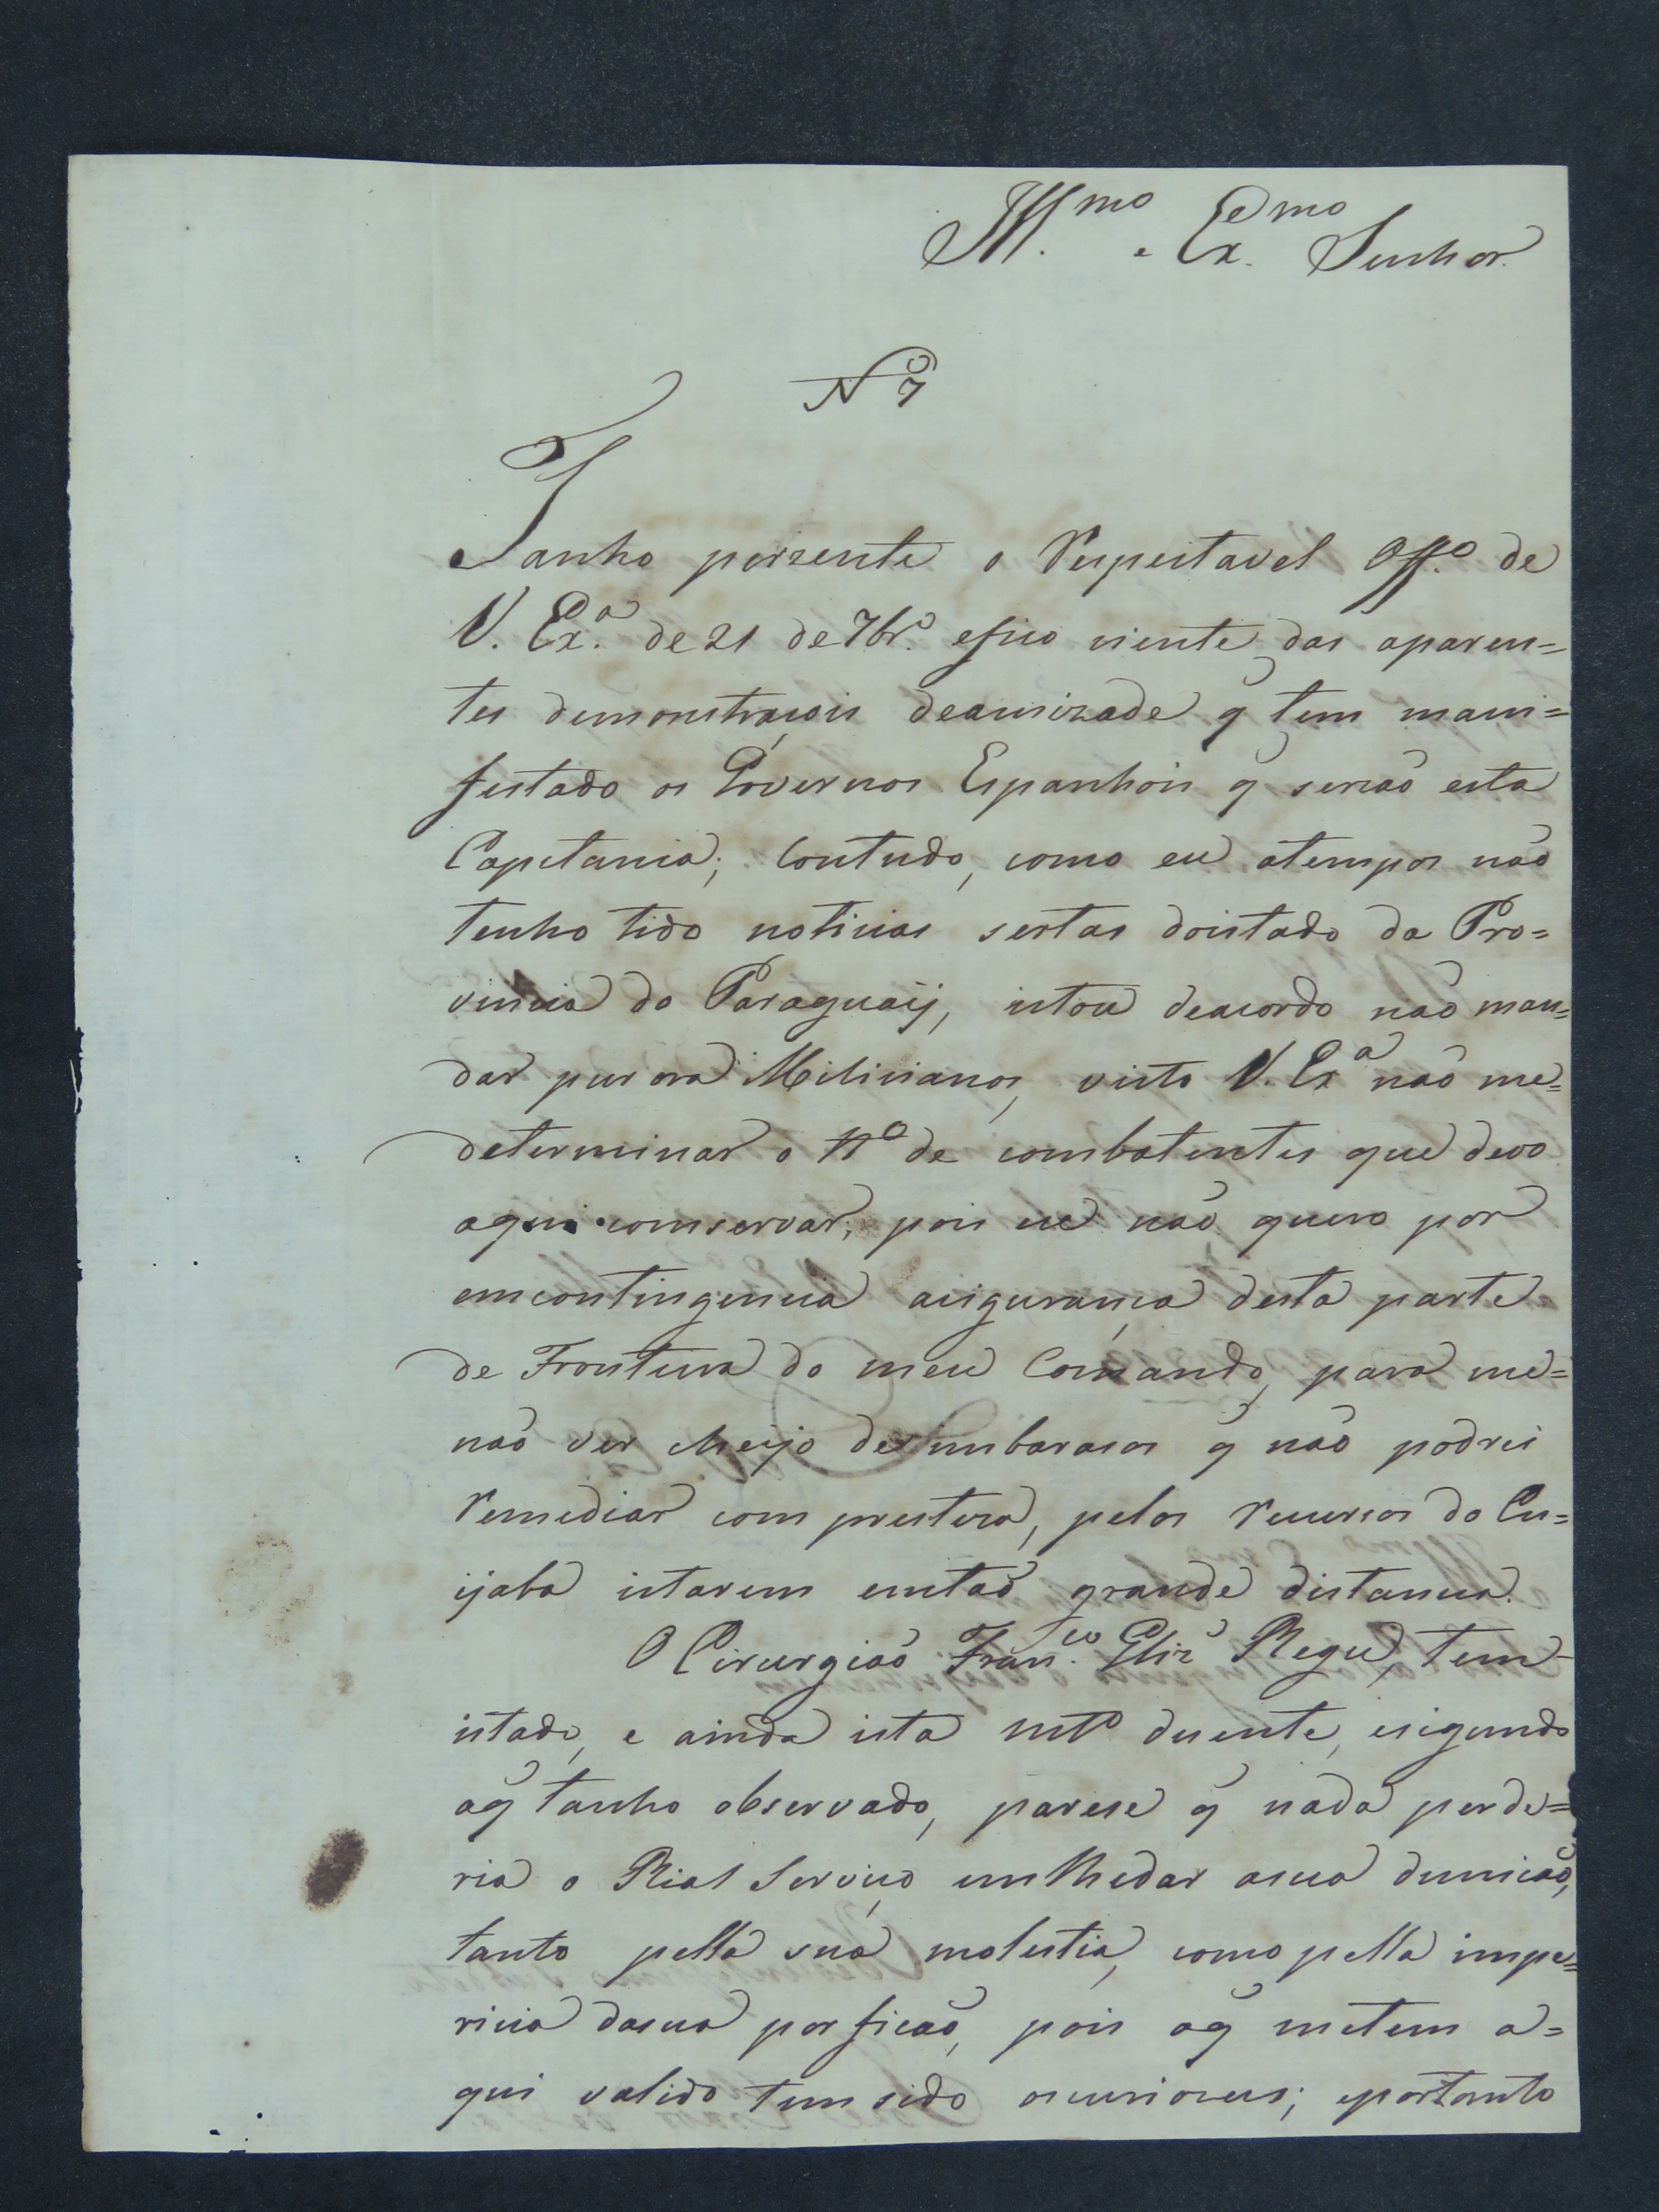 Ill.mo e Ex.mo Senhor.
Nº 7
Tanho porzente o Respeitavel Off.º de
V. Ex.ª de 21 de 7br.º efico ciente das aparen=
tes demonstraçois deamizade q̃ tem mani=
festado os Governos Espanhois q̃ sercaõ esta
Capitania; Contudo, como eu atempos naõ
tenho tido noticias sertas doistado da Pro=
vincia do Paraguaÿ, istou deacordo naõ man=
dar pur ora Milicianos, visto V. Exª naõ me=
determinar o Nº de combatentes que devo
aqui comservar; pois eu naõ quero por
emcontingencia asigurança desta parte
de Fronteira do meu Comando, para me=
naõ ver cheijo de imbarasos q̃ naõ podrei
Remediar com presteza, pelos Recursos do Cu=
ijaba istarem emtaõ grande distancia.
O Cirurgiaõ Fran.co Glz̃ Regu, tem
istado, e ainda ista mtº duente, esigundo
oq̃ tanho observado, parese q̃ nada perde=
ria o Rial Serviço emlhedar asua dimicaõ,
tanto pella sua molestia, como pella impe=
ricia dasua porficaõ, pois oq̃ metem a=
qui valido tem sido oscuriozus; eportanto